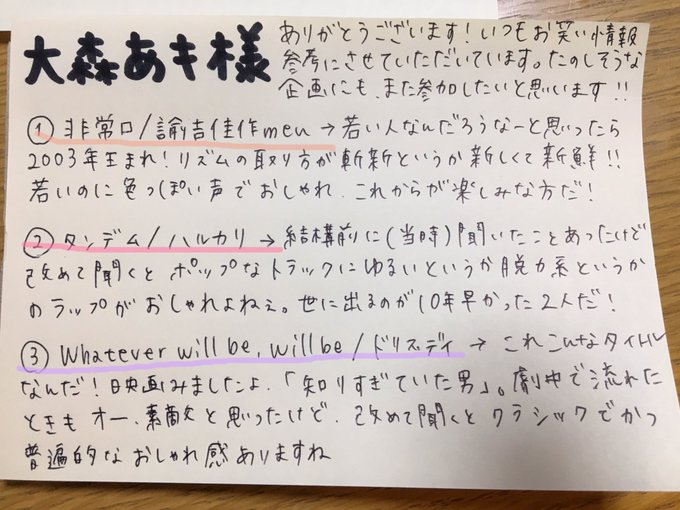 大森あき様
ありがとうございます!いつもお笑い情報
参考にさせていただいています。たのしそうな
企画にも、また参加したいと思います!!
① 非常口/諭吉佳作men → 若い人なんだろうなーと思ったら
2003年生まれ!リズムの取り方が斬新というか新しくて新鮮!!
若いのに色っぽい声でおしゃれ、これからが楽しみな方だ!
② タンデム/ハルカリ → 結構前に(当時)聞いたことあったけど
改めて聞くと ポップなトラックにゆるいというか脱力系というか
のラップがおしゃれよねぇ。世に出るのが10年早かった2人だ!
③ Whatever will be, will be/ドリス・デイ → これこんなタイトル
なんだ!映画みましたよ、「知りすぎていた男」。劇中で流れた
ときも オー、素敵と思ったけど、改めて聞くとクラシックでかつ
普遍的なおしゃれ感ありますね